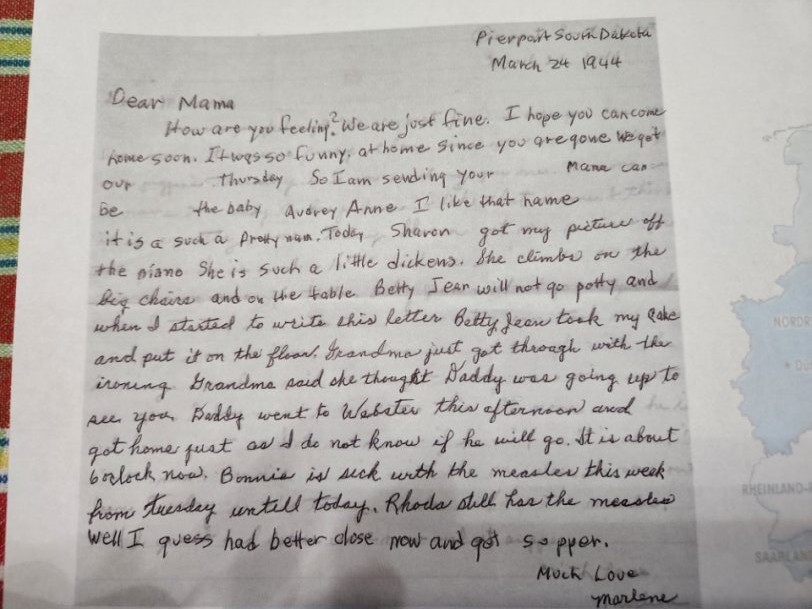 Pierpont South Dakota
March 24 1944
Dear Mama
How are you feeling? We are just fine. I hope you can come
home soon. It was so funny, at home since you are gone We got
our Thursday So I am sending your Mama can
be the baby Audrey Anne I like that name
it is a such a Pretty num. Today Sharon got my picture off
the piano She is such a little dickens. She climbs on the
big chairs and on the table Betty Jean will not go potty and
when I started to write this letter Betty Jean took my
and put it on the floor. Grandma just got through with the
ironing Grandma said she thought Daddy was going up to
see you. Daddy went to Webster this afternoon and
got home just as I do not know if he will go. It is about
6 oclock now. Bonnie is sick with the measles this week
from Tuesday untill today. Rhoda still has the measles
Well I guess had better close now and got supper.
Much Love
Marlene
NORDR
RHEINLAND-
SAARLAN